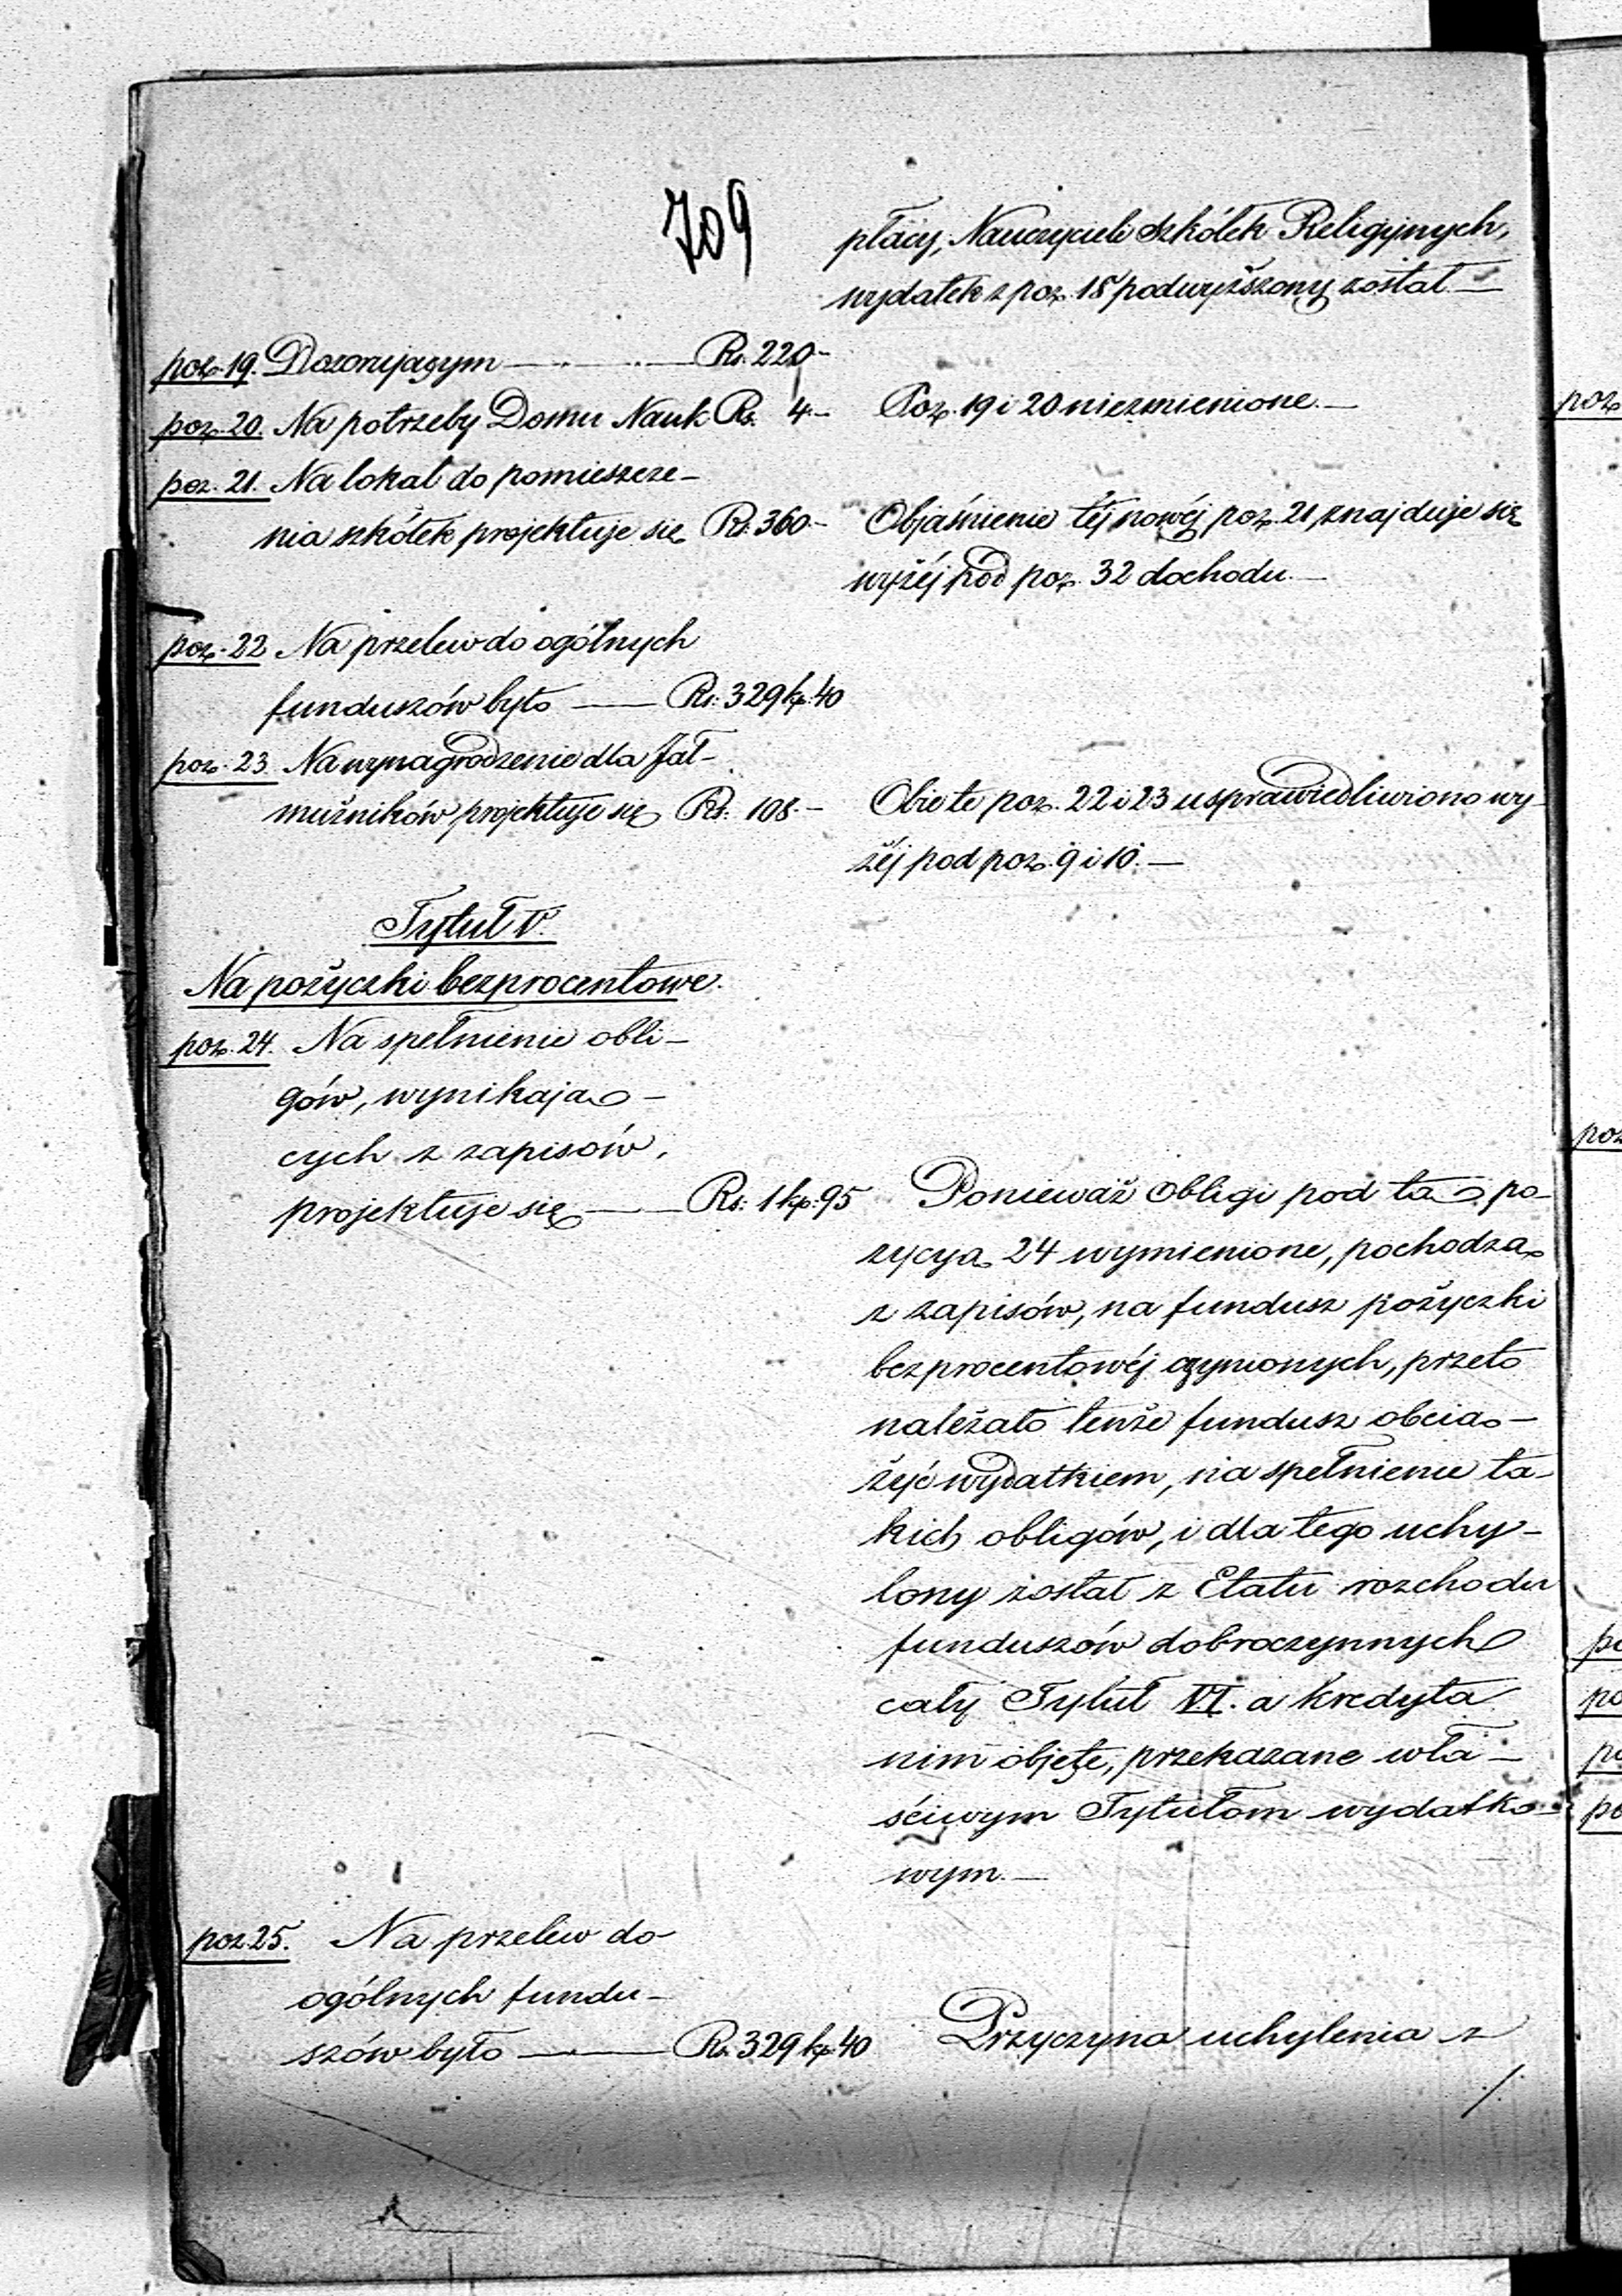 709
płacy, Nauczycieli Szkółek Religijnych,
wydatek z poz. 18 podwyższony został —
poz. 19. Dozorującym — Rs. 220 -
poz. 20. Na potrzeby Domu Nauk Rs. 4 -
Poz. 19 i 20 niezmienione. —
poz. 21. Na lokal do pomieszcze-
nia szkółek projektuje się Rs. 360 -
Objaśnienie téj nowéj poz. 21, znajduje się
wyżéj pod poz. 32 dochodu. —
poz. 22 Na przelew do ogólnych
funduszów było — Rs. 329 kp. 40
poz. 23. Na wynagrodzenie dla Jał-
mużników projektuje się Rs. 108 -
Obie te poz. 22 i 23 usprawiedliwiono wy-
żéj pod poz. 9 i 10. —
Tytuł V.
Na pożyczki bezprocentowe.
poz. 24. Na spełnienie obli-
gów, wynikają-
cych z zapisów,
projektuje się — Rs. 1 kp. 95
Ponieważ obligi pod tą po-
zycyą 24 wymienione, pochodzą
z zapisów, na fundusz pożyczki
bezprocentowéj czynionych, przeto
należało tenże fundusz obcią-
żyć wydatkiem, na spełnienie ta-
kich obligów, i dla tego uchy-
lony został z Etatu rozchodu
funduszów dobroczynnych
cały Tytuł VI. a kredyta
nim objęte, przekazane wła-
ściwym Tytułom wydatko-
wym. —
poz. 25. Na przelew do
ogólnych fundu-
szów było — Rs. 329 kp. 40
Przyczyna uchylenia z
./.